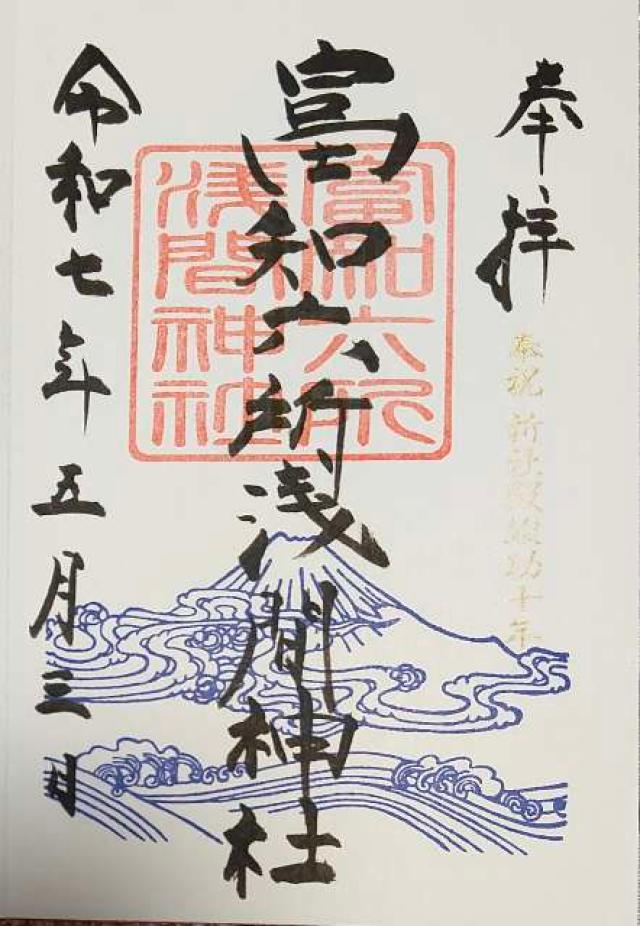 奉拝
奉祝 新社殿竣功十年
富知六所浅間神社
富知六所
浅間神社
令和七年五月三日